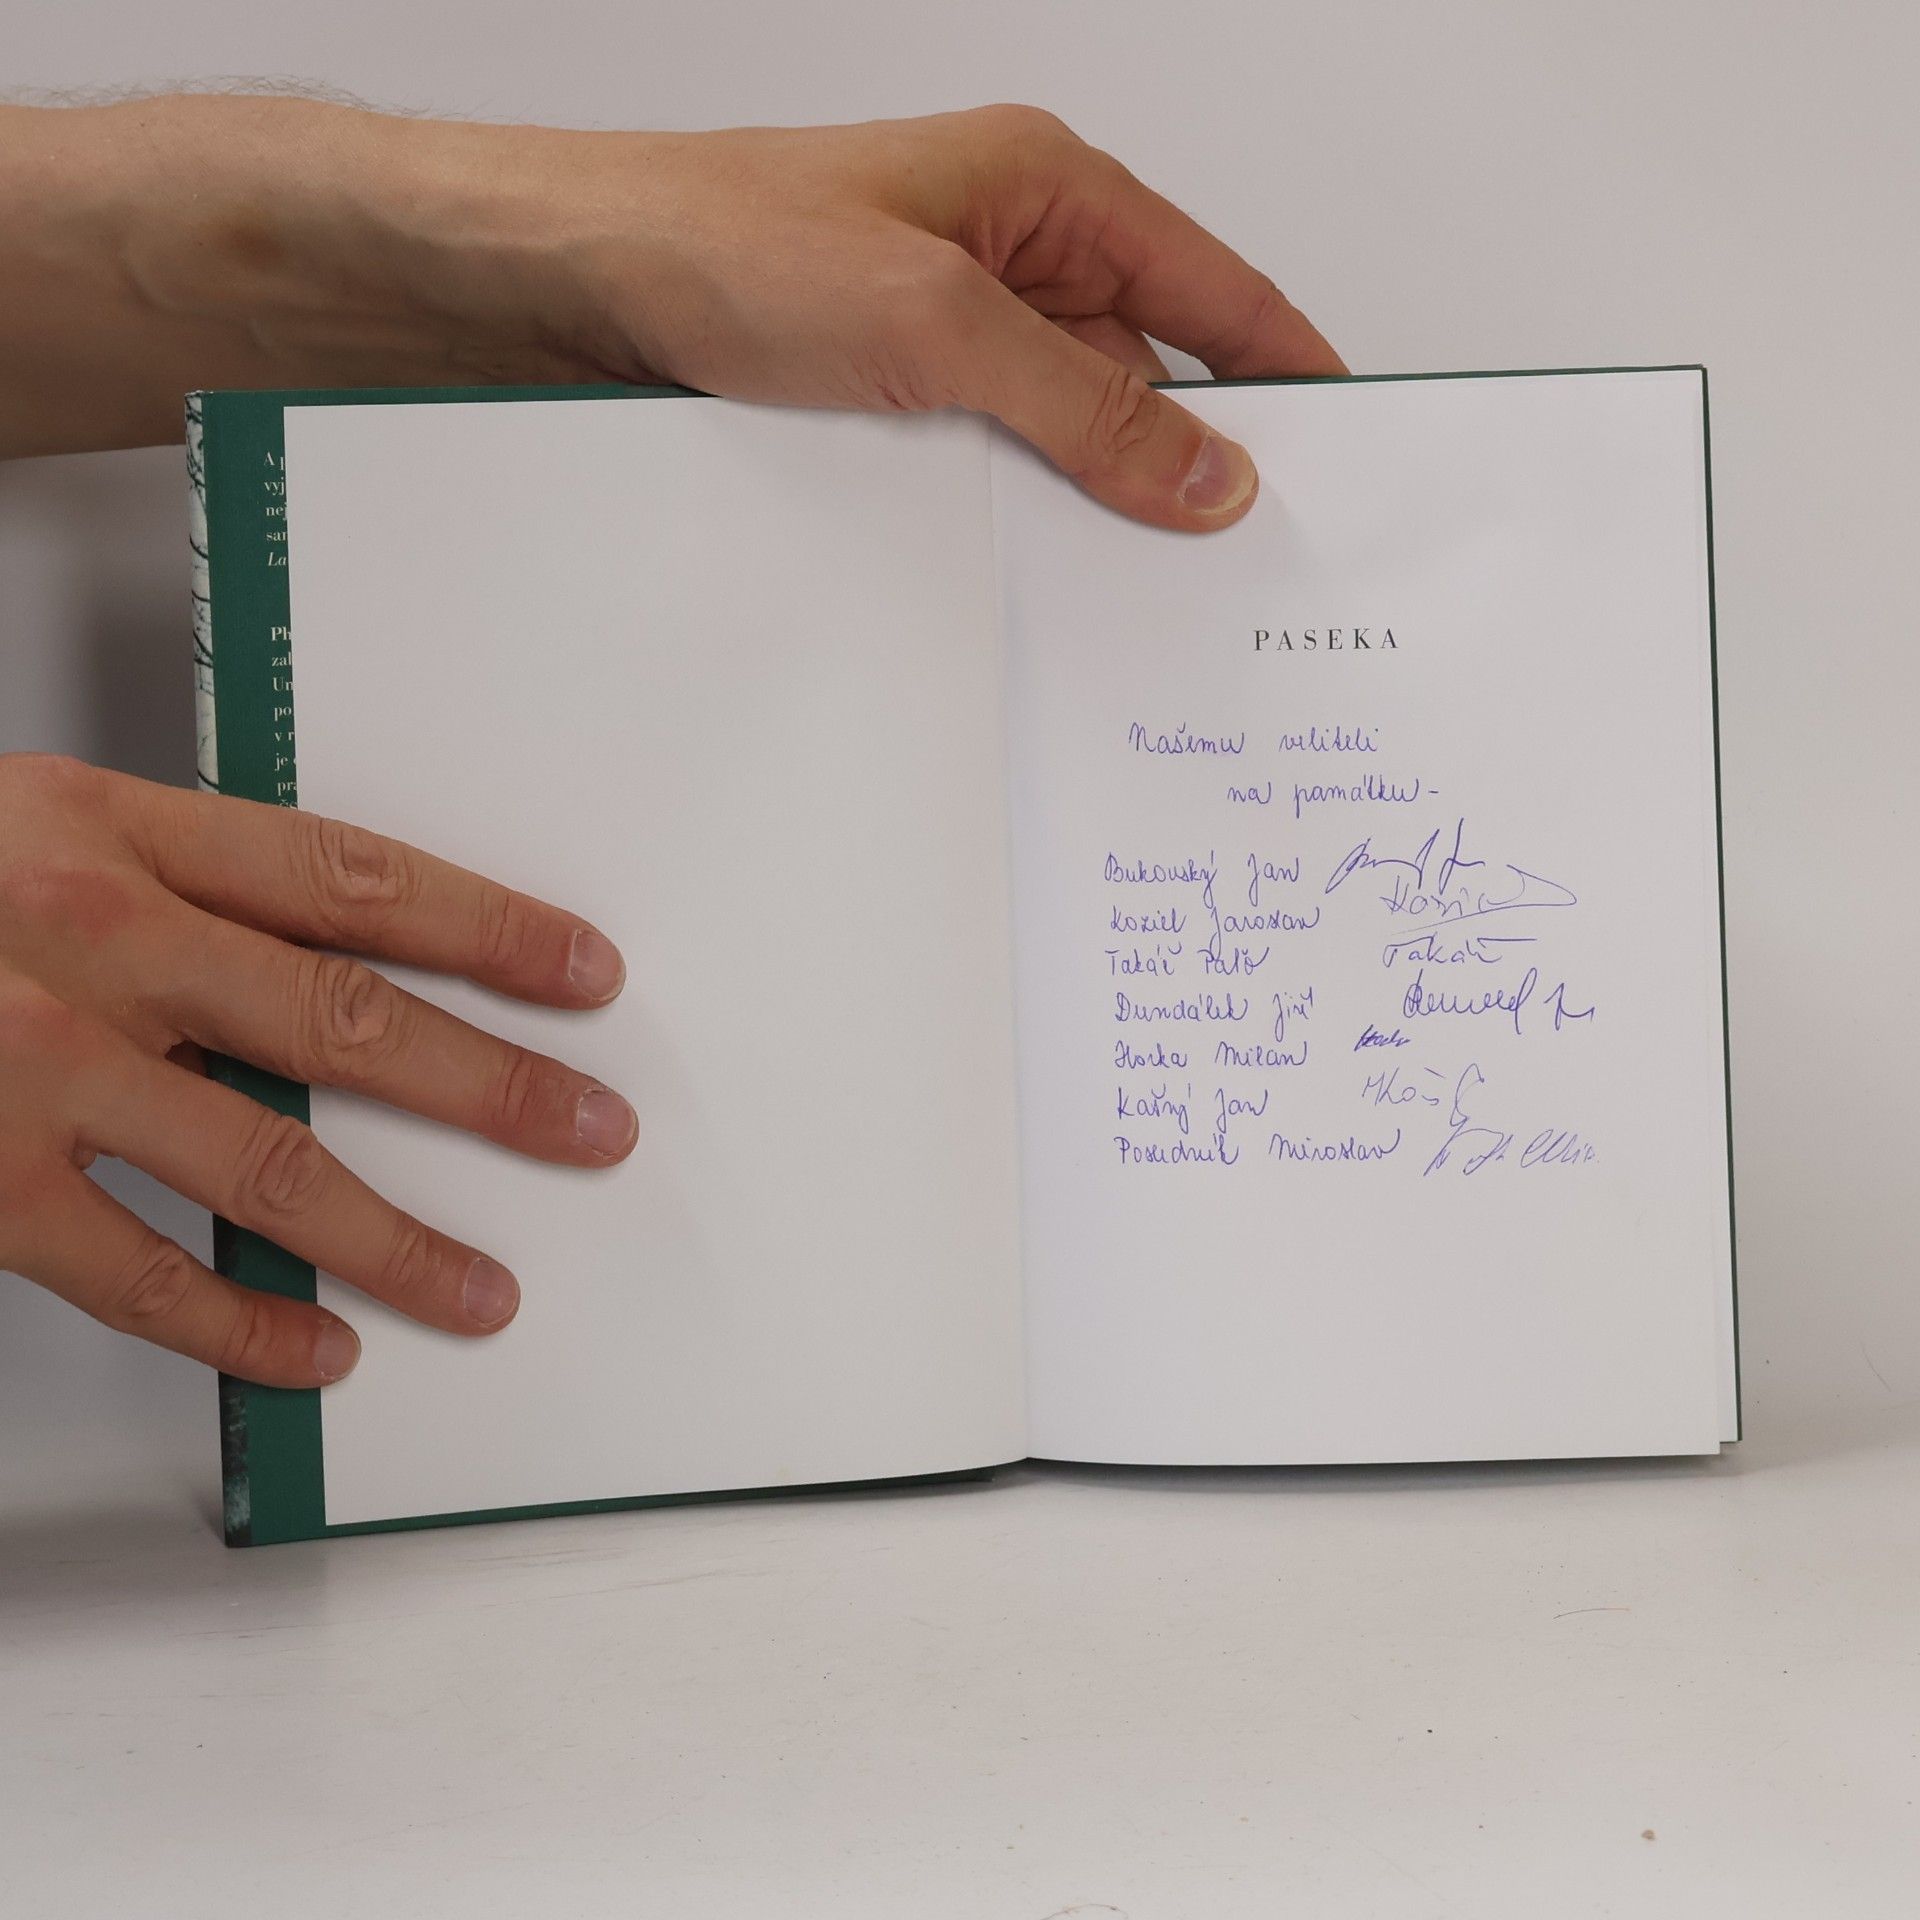 A p
vyj
nej
sar
La
Ph
zal
Un
po
v r
je
pra
PASEKA
Našemu veliteli
na památku -
Bukovský Jan
Koziel Jaroslav
Takáč Palo Takáč
Dundálek Jiří
Horka Milan
Kašný Jan
Posedník Miroslav